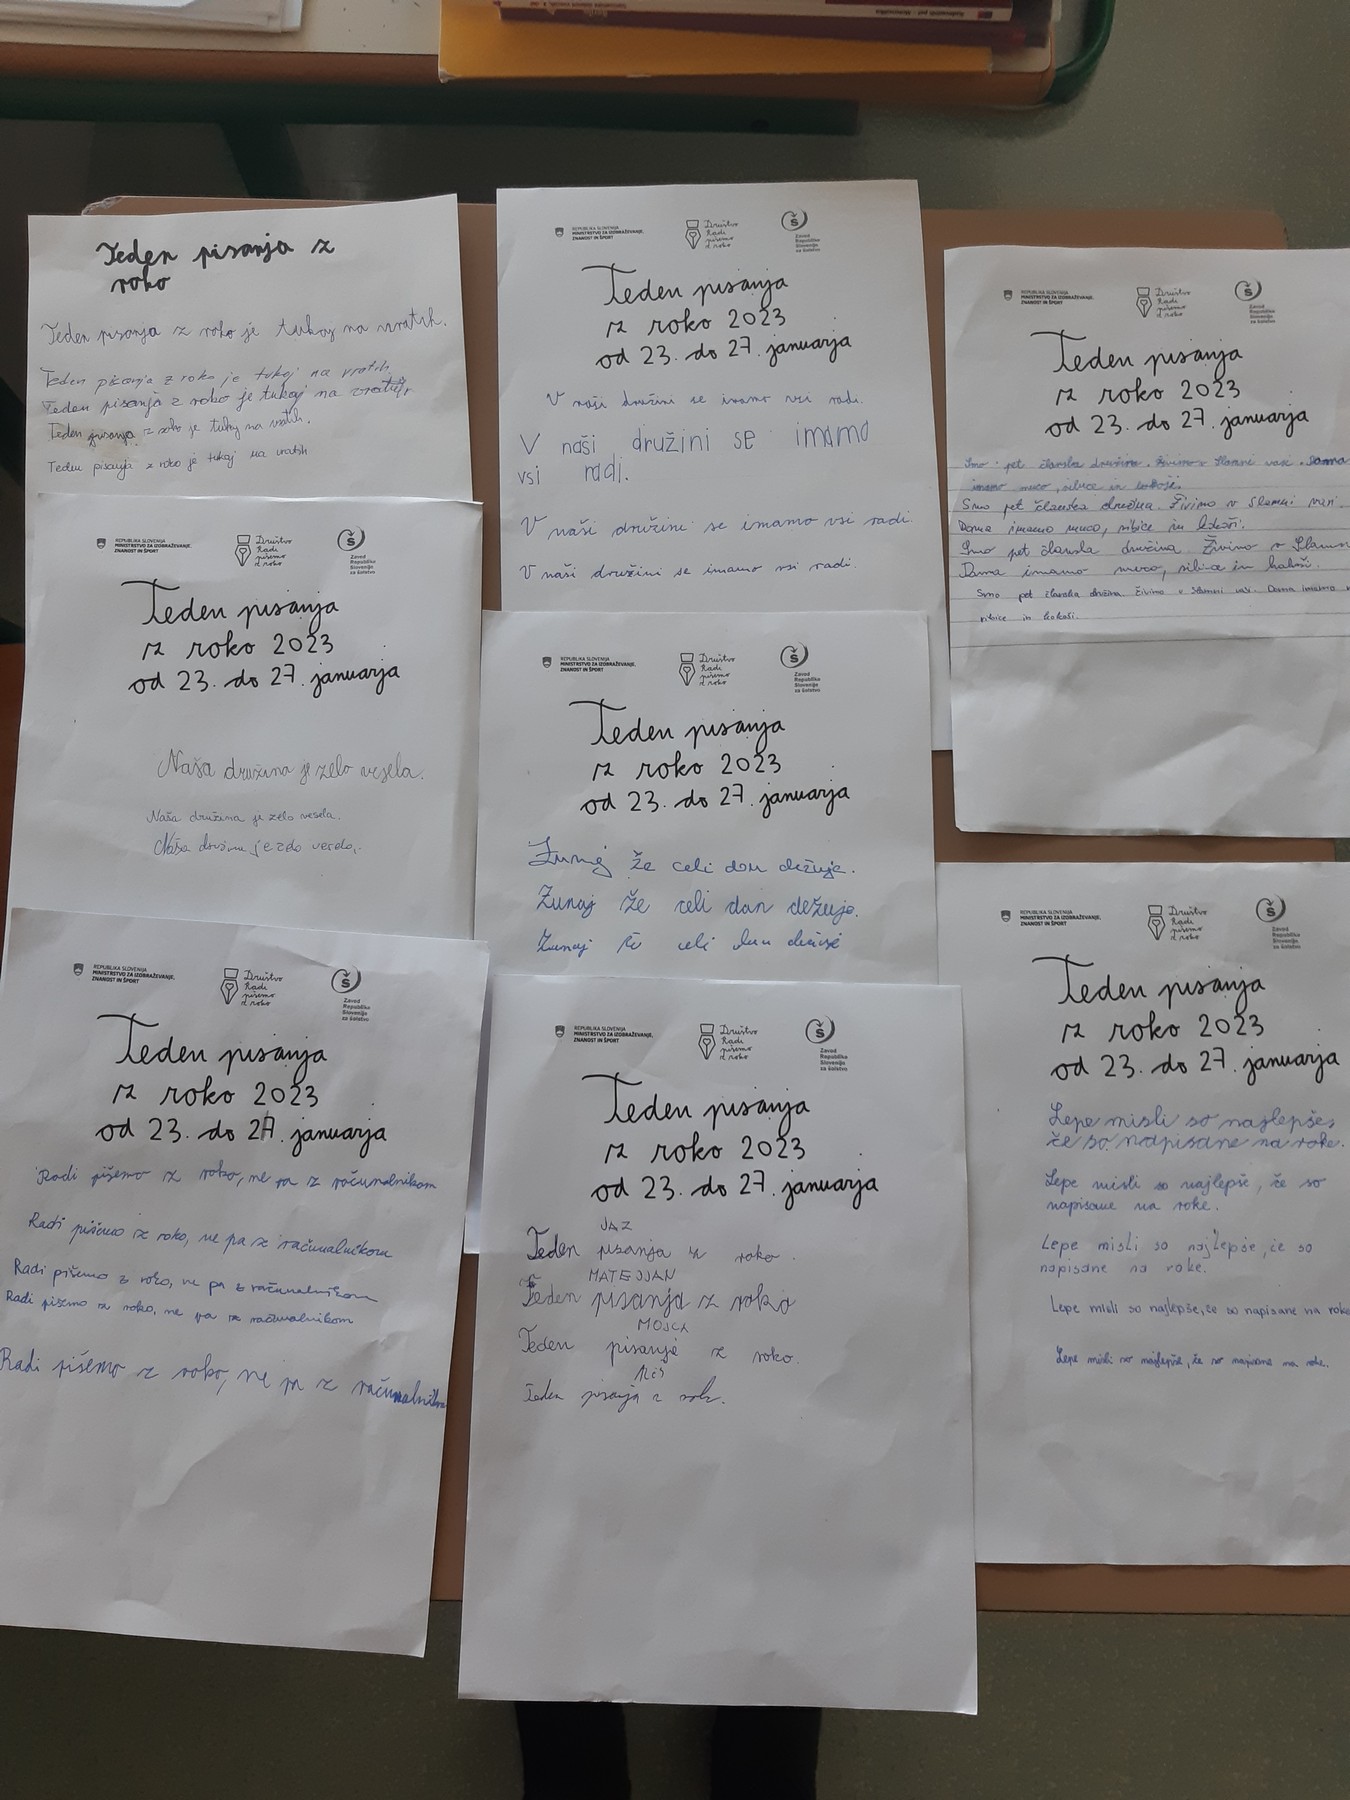 Teden pisanja z
roko
Teden pisanja z roko je tukaj na vratih.
Teden pisanja z roko je tukaj na vratih.
Teden pisanja z roko je tukaj na vratih
Teden pisanja z roko je tukaj na vratih.
Teden pisanja z roko je tukaj na vratih
REPUBLIKA SLOVENIJA
MINISTRSTVO ZA IZOBRAŽEVANJE,
ZNANOST IN ŠPORT
Društvo
Radi
pišemo
z roko
Zavod
Republike
Slovenije
za šolstvo
Teden pisanja
z roko 2023
od 23. do 27. januarja
V naši družini se imamo vsi radi.
V naši družini se imamo
vsi radi.
V naši družini se imamo vsi radi.
V naši družini se imamo vsi radi.
REPUBLIKA SLOVENIJA
MINISTRSTVO ZA IZOBRAŽEVANJE,
ZNANOST IN ŠPORT
Društvo
Radi
pišemo
z roko
Zavod
Republike
Slovenije
za šolstvo
Teden pisanja
z roko 2023
od 23. do 27. januarja
Smo pet članska družina. Živimo v Slamni vasi. Doma
imamo muco, ribice in kokoši.
Smo pet članska družina. Živimo v Slamni vasi.
Doma imamo muco, ribice in kokoši.
Smo pet članska družina. Živimo v
Doma imamo muco, ribice in kokoši.
Smo pet članska družina živimo v Slamni vasi. Doma imamo
ribice in kokoši.
REPUBLIKA SLOVENIJA
MINISTRSTVO ZA IZOBRAŽEVANJE,
ZNANOST IN ŠPORT
Društvo
Radi
pišemo
z roko
Zavod
Republike
Slovenije
za šolstvo
Teden pisanja
z roko 2023
od 23. do 27. januarja
Naša družina je zelo vesela.
Naša družina je zelo vesela.
Naša družina je zelo vesela.
REPUBLIKA SLOVENIJA
MINISTRSTVO ZA IZOBRAŽEVANJE,
ZNANOST IN ŠPORT
Društvo
Radi
pišemo
z roko
Zavod
Republike
Slovenije
za šolstvo
Teden pisanja
z roko 2023
od 23. do 27. januarja
Zunaj že celi dan dežuje.
Zunaj že celi dan dežuje.
Zunaj že celi dan
REPUBLIKA SLOVENIJA
MINISTRSTVO ZA IZOBRAŽEVANJE,
ZNANOST IN ŠPORT
Društvo
Radi
pišemo
z roko
Zavod
Republike
Slovenije
za šolstvo
Teden pisanja
z roko 2023
od 23. do 27. januarja
Lepe misli so najlepše,
če so napisane na roke.
Lepe misli so najlepše, če so
napisane na roke.
Lepe misli so najlepše, če so
napisane na roke.
Lepe misli so najlepše, če so napisane na roke
Lepe misli so najlepše, če so napisane na roke.
REPUBLIKA SLOVENIJA
MINISTRSTVO ZA IZOBRAŽEVANJE,
ZNANOST IN ŠPORT
Društvo
Radi
pišemo
z roko
Zavod
Republike
Slovenije
za šolstvo
Teden pisanja
z roko 2023
od 23. do 27. januarja
Radi pišemo z roko, ne pa z računalnikom
Radi pišemo z roko, ne pa z računalnikom
Radi pišemo z roko, ne pa z računalnikom
Radi pišemo z roko, ne pa z računalnikom
Radi pišemo z roko, ne pa z računalnikom
REPUBLIKA SLOVENIJA
MINISTRSTVO ZA IZOBRAŽEVANJE,
ZNANOST IN ŠPORT
Društvo
Radi
pišemo
z roko
Zavod
Republike
Slovenije
za šolstvo
Teden pisanja
z roko 2023
od 23. do 27. januarja
JAZ
Teden pisanja z roko.
MATEJJAN
Teden pisanja z roko
MOJCA
Teden pisanje z roko.
Teden pisanja z roko.